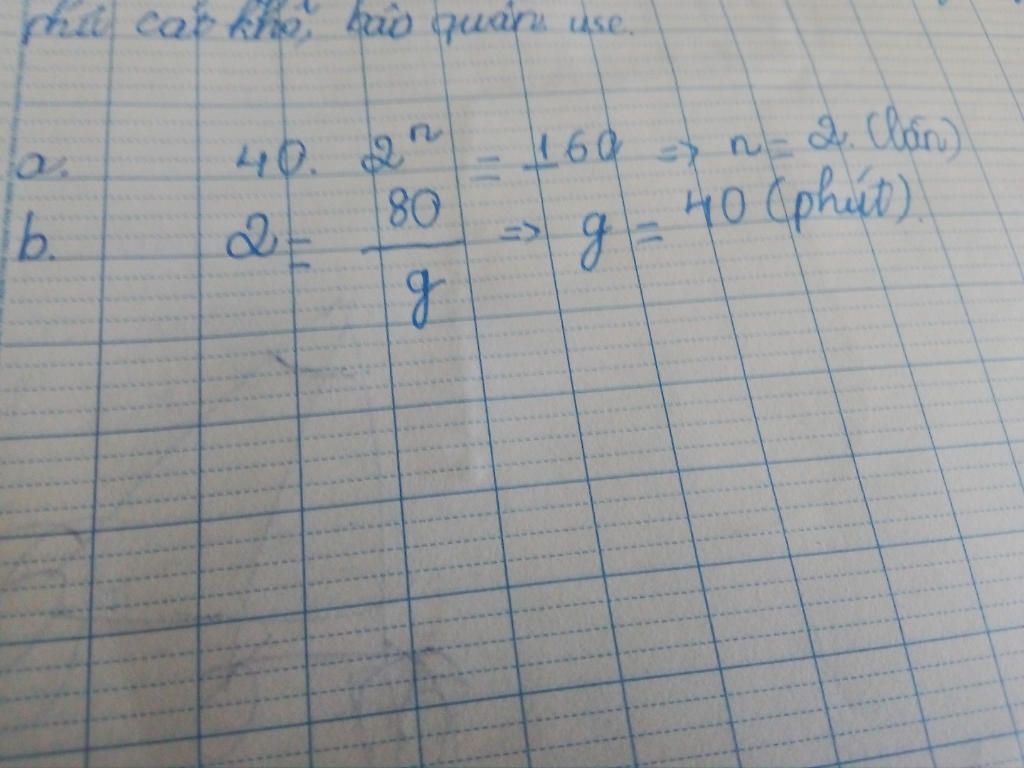 phú cấp khổ, bảo quản use.
a. 40. 2ⁿ = 160 => n = 2. (lần)
b. 2 = 80/g => g = 40 (phút).